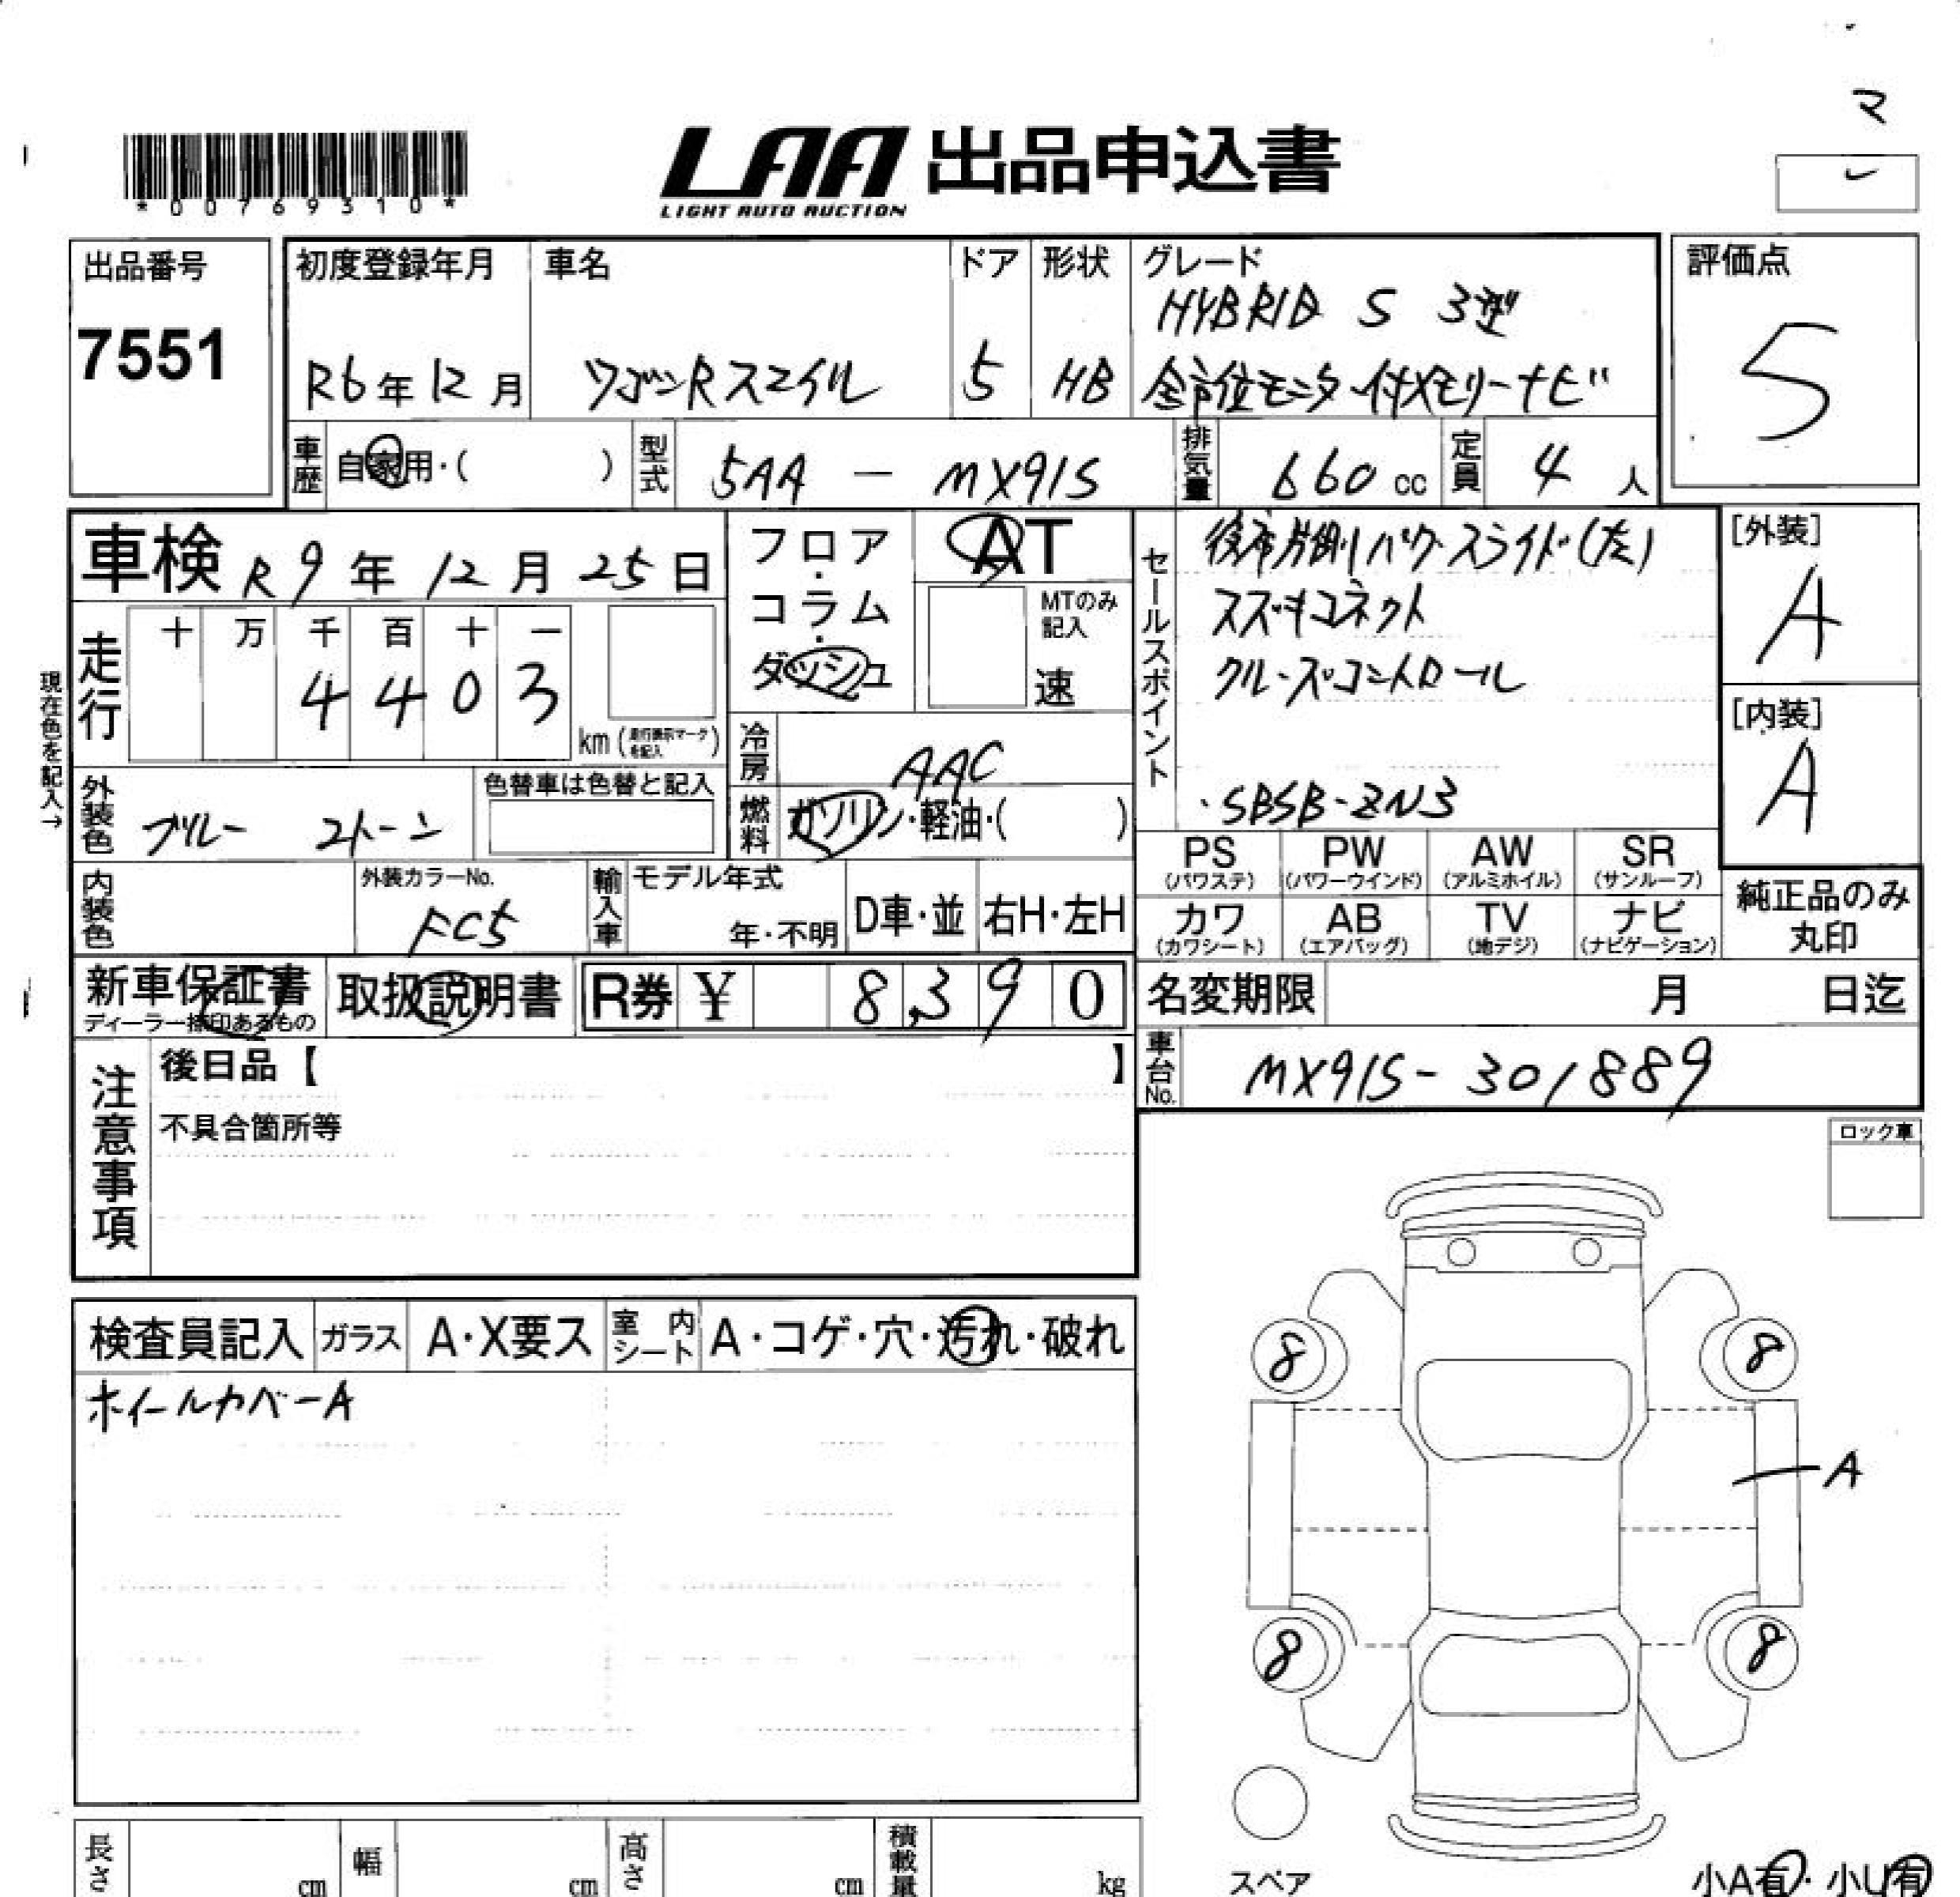 マ
レ
*00769310*
LAA 出品申込書
LIGHT AUTO AUCTION
出品番号
7551
初度登録年月
R6年12月
車名
ワゴンRスマイル
ドア
5
形状
HB
グレード
HYBRID S 3型
全方位モニター付メモリーナビ
評価点
5
車歴 自家用・( )
型式 5AA - MX91S
排気量 660 cc
定員 4 人
車検 R9年12月25日
フロア・コラム・ダッシュ
AT
MTのみ記入
速
走行
十 万 千 百 十 一
4 4 0 3
km (走行表示マークを記入)
現在色を記入→
外装色 ブルー 2トーン
色替車は色替と記入
冷房 AAC
燃料 ガソリン・軽油・( )
セールスポイント
片側パワースライド(左)
スズキコネクト
クルーズコントロール
・SBSB-ZN3
[外装]
A
[内装]
A
内装色
外装カラーNo.
FC5
輸入車
モデル年式
年・不明
D車・並
右H・左H
PS (パワステ)
PW (パワーウインド)
AW (アルミホイル)
SR (サンルーフ)
カワ (カワシート)
AB (エアバッグ)
TV (地デジ)
ナビ (ナビゲーション)
純正品のみ丸印
新車保証書
ディーラー捺印あるもの
取扱説明書
R券 ¥ 8,390
名変期限 月 日迄
車台No. MX91S-301889
注意事項
後日品【 】
不具合箇所等
ロック車
検査員記入
ガラス A・X要ス
室内シート A・コゲ・穴・汚れ・破れ
ホイールカバーA
8
8
A
8
8
スペア
長さ cm
幅 cm
高さ cm
積載量 kg
小A有・小U有